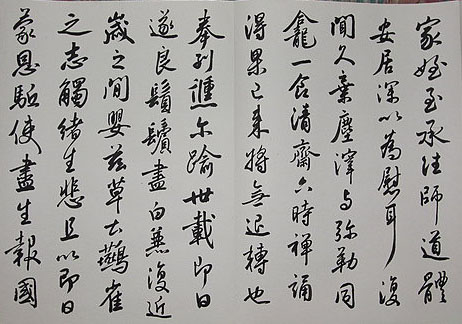 家姪至承法師道體
安居深以為慰耳復
聞久棄塵滓与弥勒同
龕一食清齋六時禅誦
得果已來將無退轉也
奉別儵尓踰卅載即日
遂良鬚鬢盡白兼復近
歲之間嬰茲草土鷰雀
之志觸緒生悲且以即日
蒙恩駈使盡生報國